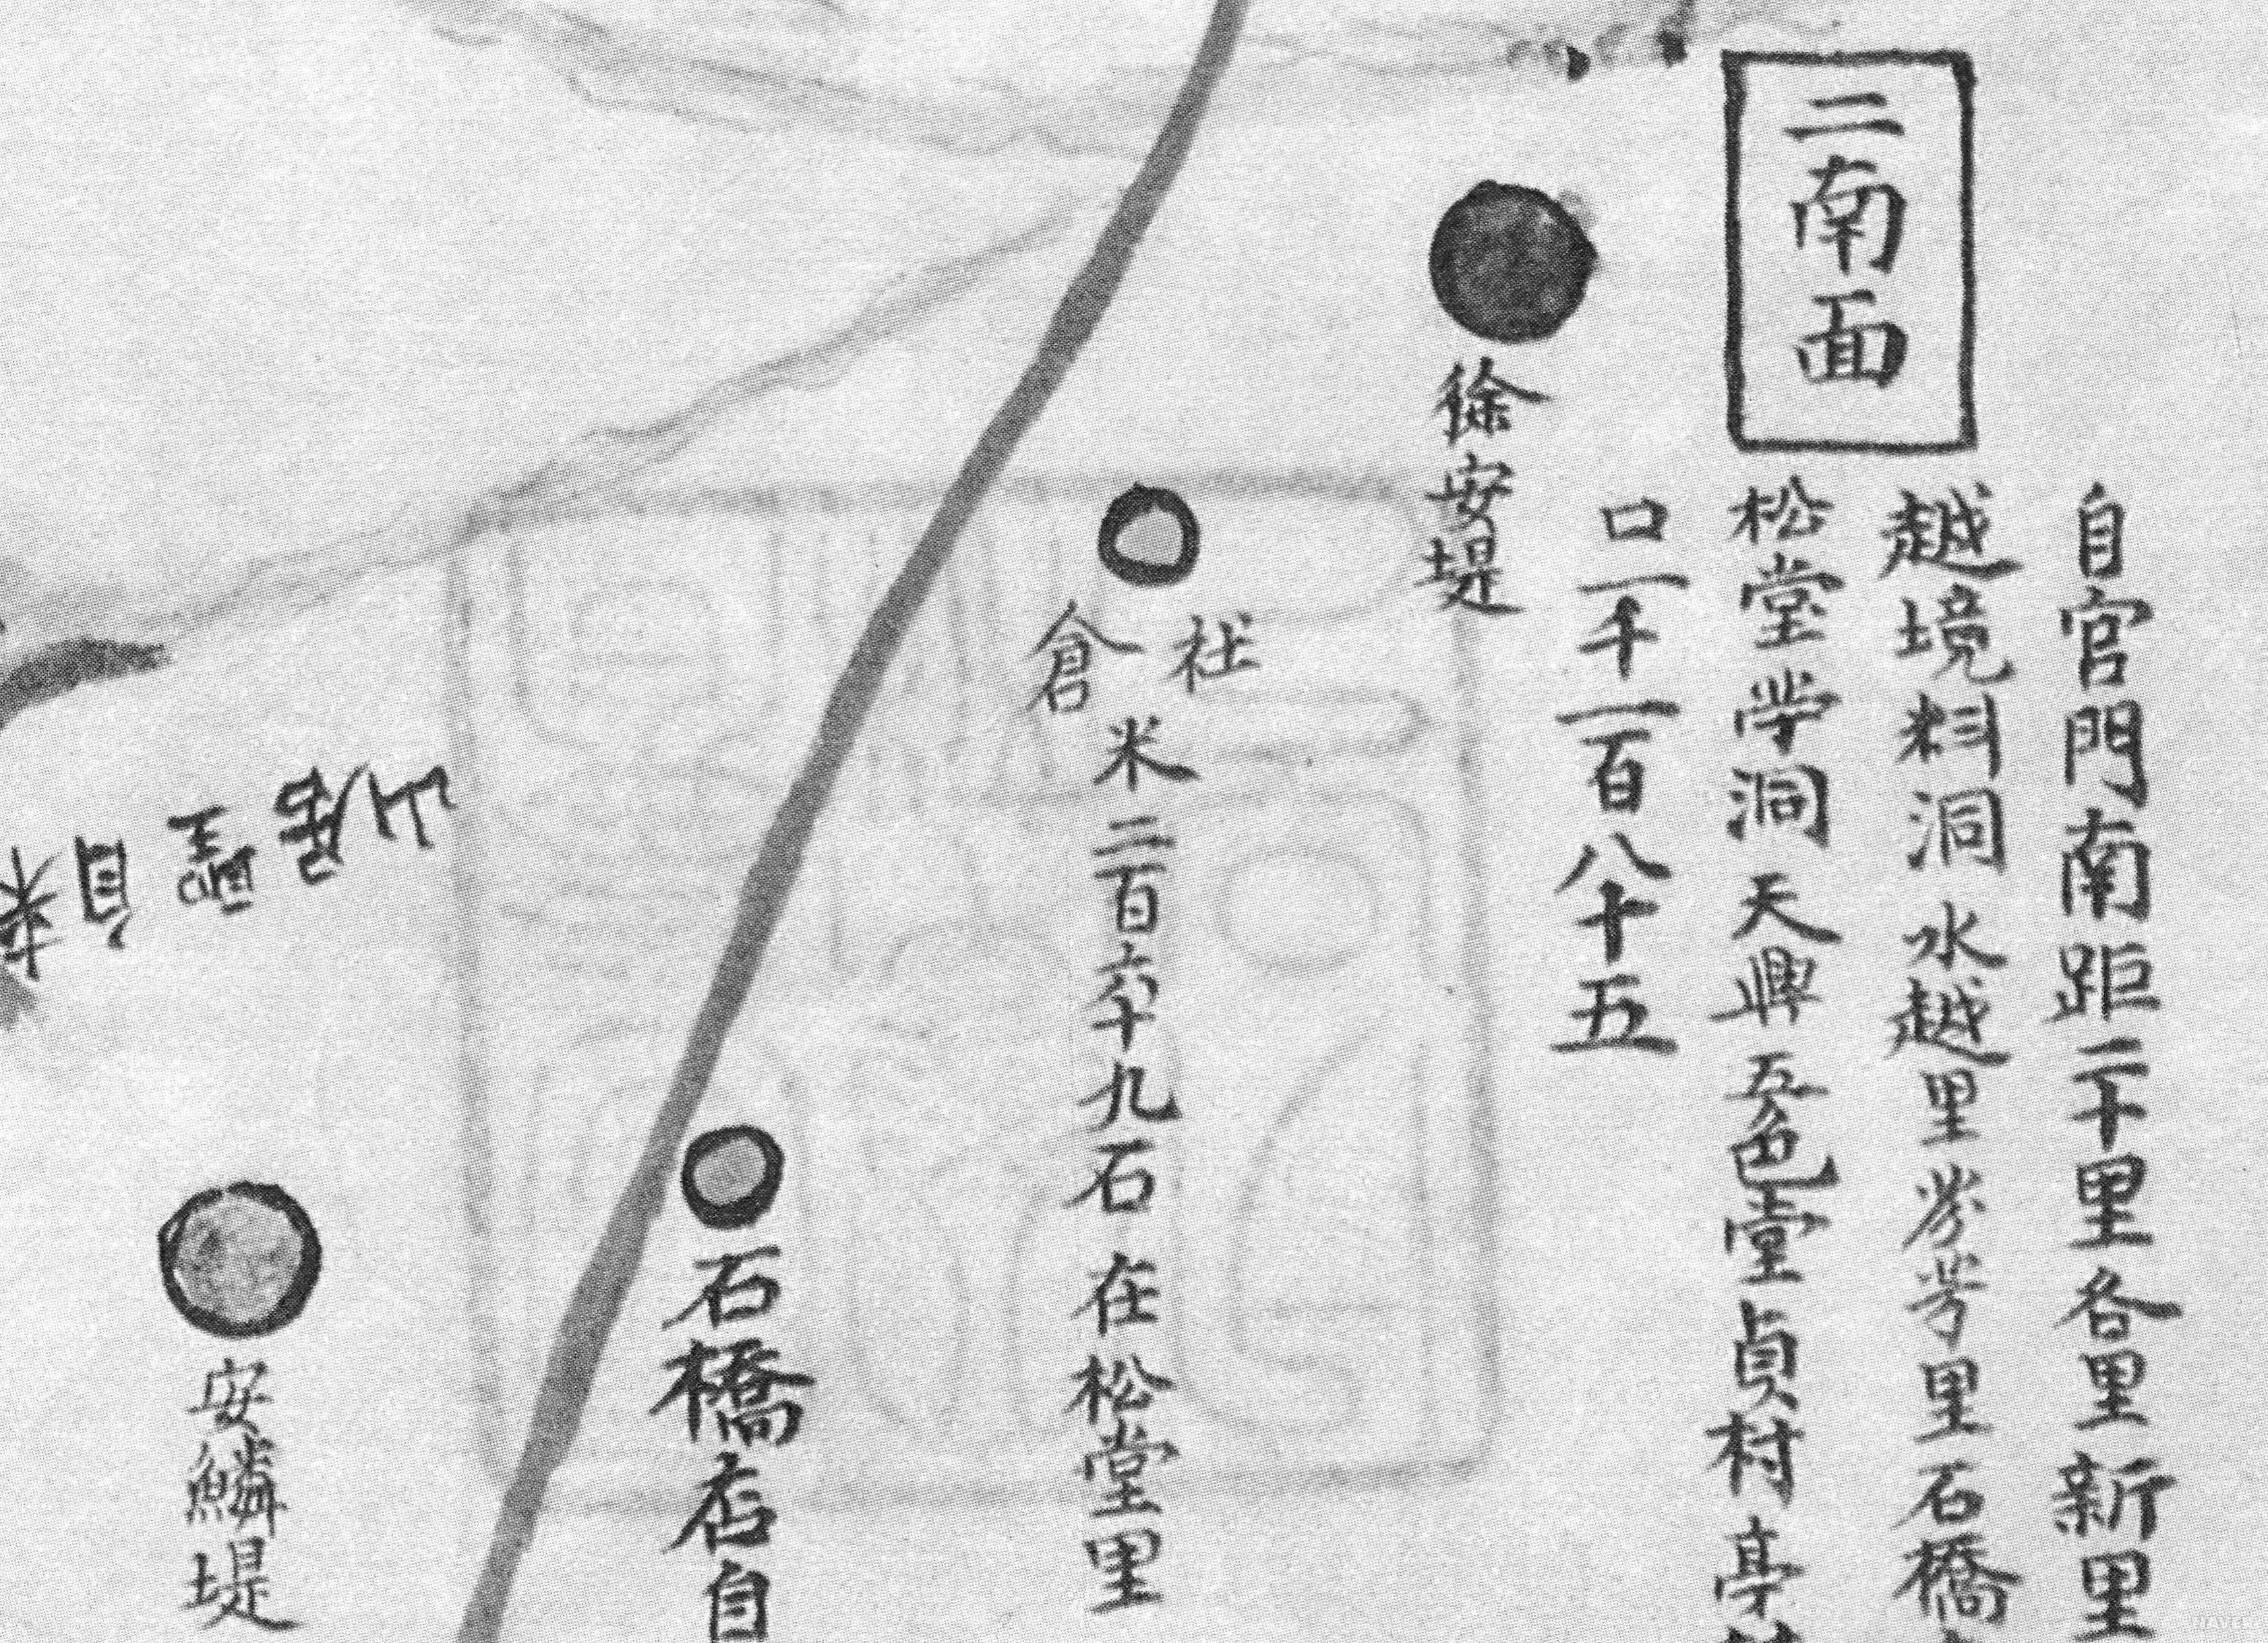 二南面
自官門南距二十里各里新里
越境料洞水越里 芳里石橋
松堂学洞天興五色堂貞村亭
口一千一百八十五
徐安堤
社倉
米二百六十九石在松堂里
石橋店自
安鱗堤